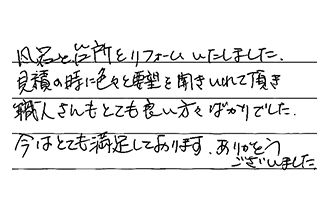 風呂と台所をリフォームいたしました.
見積の時に色々と要望を聞きいれて頂き
職人さんもとても良い方々ばかりでした.
今はとても満足しております. ありがとう
ございました.